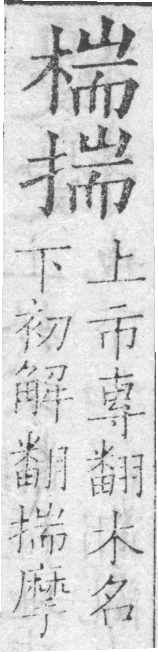 椯揣
上市專翻木名
下初解翻揣摩